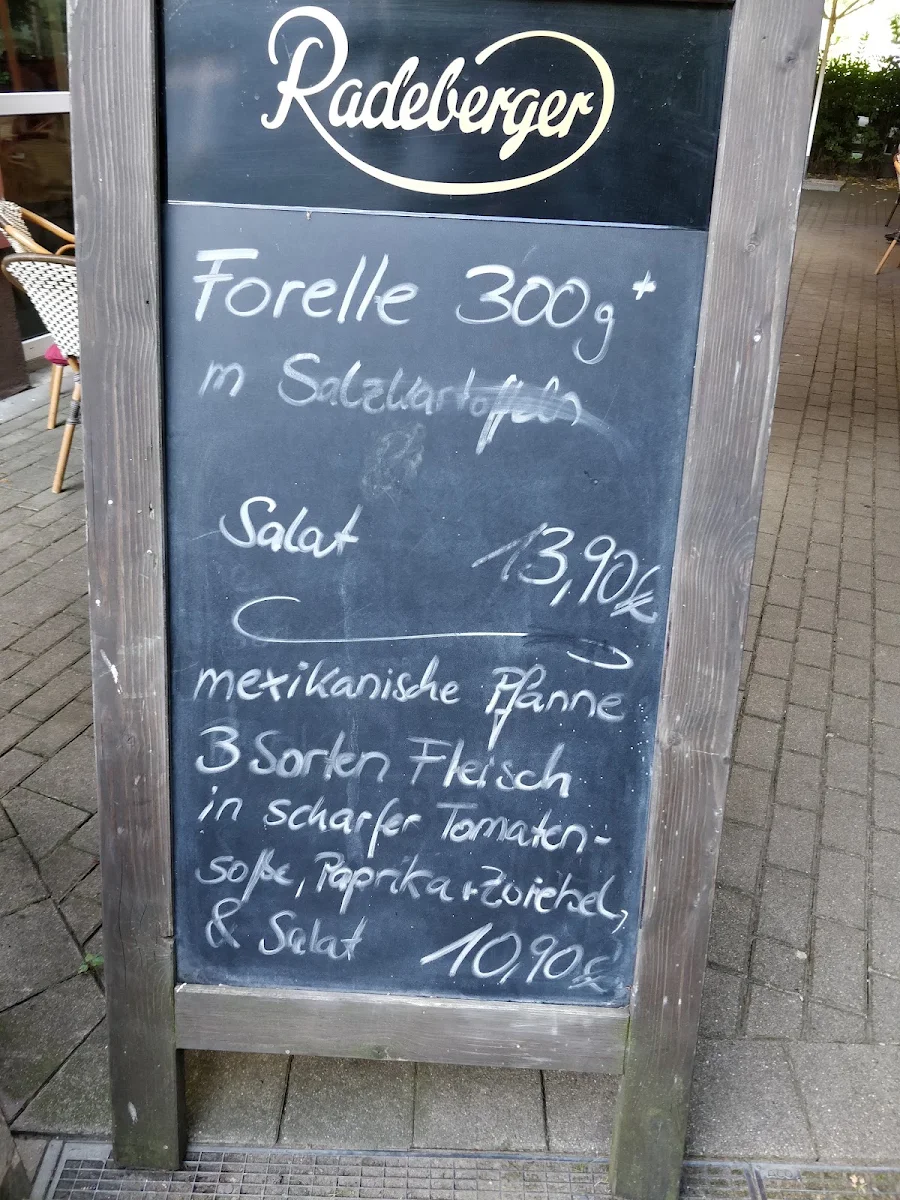 Radeberger
Forelle 300g+
m Salzkartoffeln
Salat 13,90€
mexikanische Pfanne
3 Sorten Fleisch
in scharfer Tomaten-
soße, Paprika + Zwiebel,
& Salat 10,90€